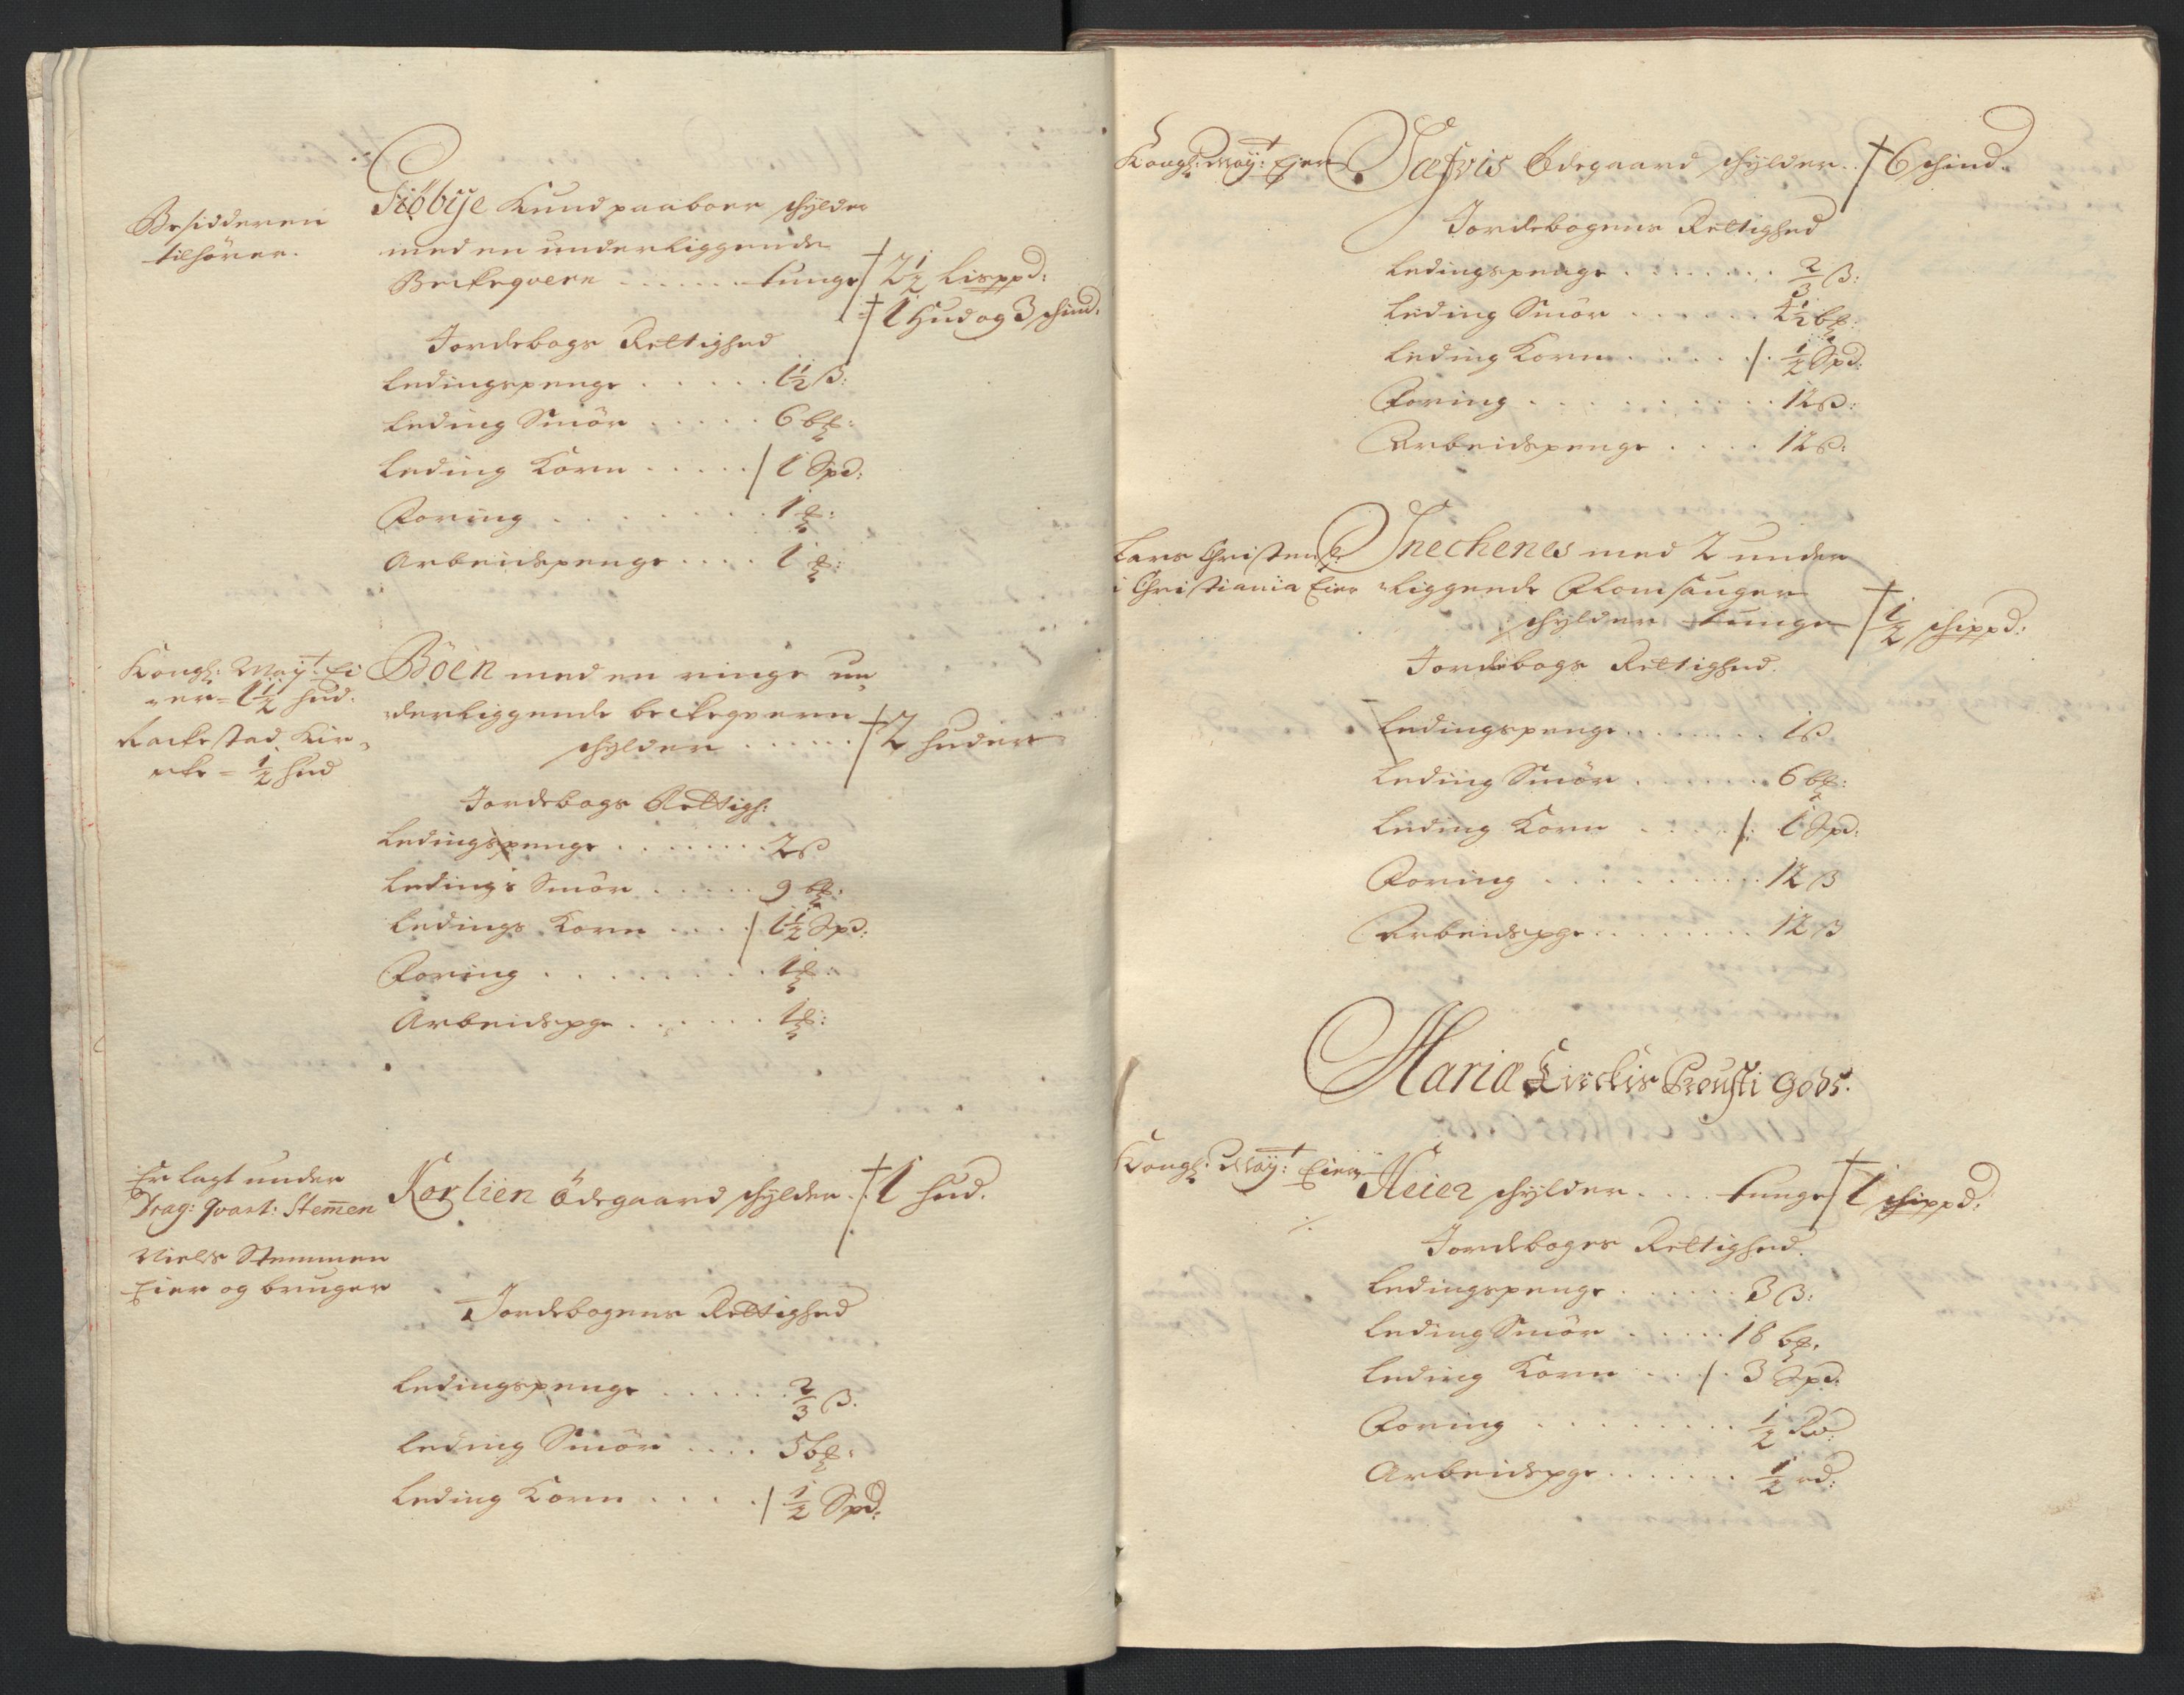 Besidderen
tilhörer.
Siöbÿe Knud paaboer skÿlder
med en underliggende
Beckeqvern . . . . . . tunge 2 1/2 Lisppd:
1 Hud og 3 skind.
Jordebogs Rettighed
Ledingspenge . . . . . 1 1/2 ß:
Leding Smör . . . . . 6 b
Leding Korn . . . . . 1 Spd:
Foring . . . . . . . . 1
Arbeidspenge . . . . 1
Kongl: Maÿt: Ei
er = 1 1/2 hud.
Rackestad Kir-
cke = 1/2 hud
Böen med en ringe un
derliggende beckeqvern
skÿlder . . . . . . 2 huder
Jordebogs Rettigh:
Ledingspenge . . . . . . . . 2 ß
Ledings Smör . . . . . 9 b
Ledings Korn . . . . 1 1/2 Spd:
Foring . . . . . . . . . 1
Arbeidspge . . . . . . 1
Er lagt under
Drag: Qvart: Stemen
Niels Stemmen
Eier og bruger
Korlien Ödegaard skÿlder . . 1 hud.
Jordebogens Rettighed
Ledingspenge . . . . . . 2/3 ß.
Leding Smör . . . . 5 b
Leding Korn . . . . . 1/2 Spd:
Kongl: Maÿt: Eier
Ödegaard skÿlder . . 6 skind.
Jordebogens Rettighed
Ledingspenge . . . . . . . . 2/3 ß:
Leding Smör . . . . . . 4 1/2 b
Leding Korn . . . . . . 1/2 Spd:
Foring . . . . . . . . . . 12 ß:
Arbeidspenge . . . . 12 ß:
Lars Christens:
i Christiania Eier
Snechenes med 2 under
liggende Flomsauger
skÿlder tunge 1/2 skippd:
Jordebogs Rettighed.
Ledingspenge . . . . . . . . 1 ß
Leding Smör . . . . . . . 6 b
Leding Korn . . . . . 1 Spd:
Foring . . . . . . . . . . 12 ß
Arbeidspge . . . . . . . . 12 ß
Mariæ Kirckis Prousti Gods.
Kongl: Maÿt: Eier
Heier skÿlder . . . . tunge 1 skippd:
Jordeboges Rettighed.
Ledingspenge . . . . . . 3 ß:
Leding Smör . . . . . 18 b
Leding Korn . . . . . 3 Spd:
Foring . . . . . . . . . 1/2 Rd:
Arbeidspge . . . . . . . 1/2 rd: